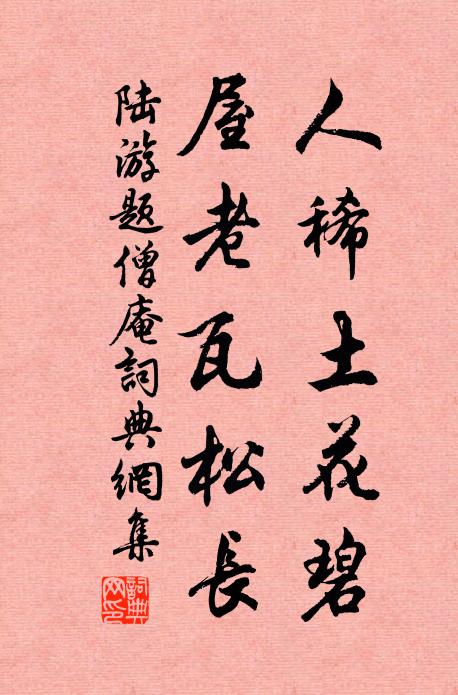 人稀土花碧
屋老瓦松長
陆游题僧庵詞典網集
詞典網印